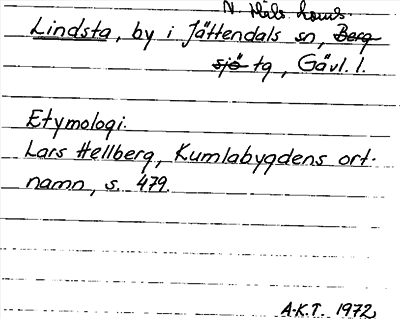 N. Häls. koms.
Lindsta, by i Jättendals sn, Berg
sjö tg, Gävl. l.
Etymologi.
Lars Hellberg, Kumlabygdens ort-
namn, s. 479.
A.K.T. 1972